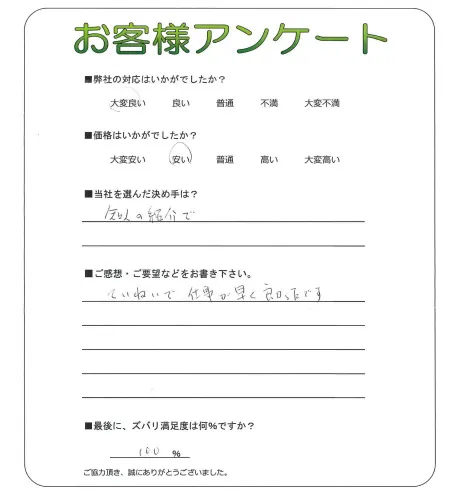 お客様アンケート
■弊社の対応はいかがでしたか？
大変良い 良い 普通 不満 大変不満
■価格はいかがでしたか？
大変安い 安い 普通 高い 大変高い
■当社を選んだ決め手は？
知人の紹介で
■ご感想・ご要望などをお書き下さい。
ていねいで 仕事が早く良かったです
■最後に、ズバリ満足度は何％ですか？
100 ％
ご協力頂き、誠にありがとうございました。